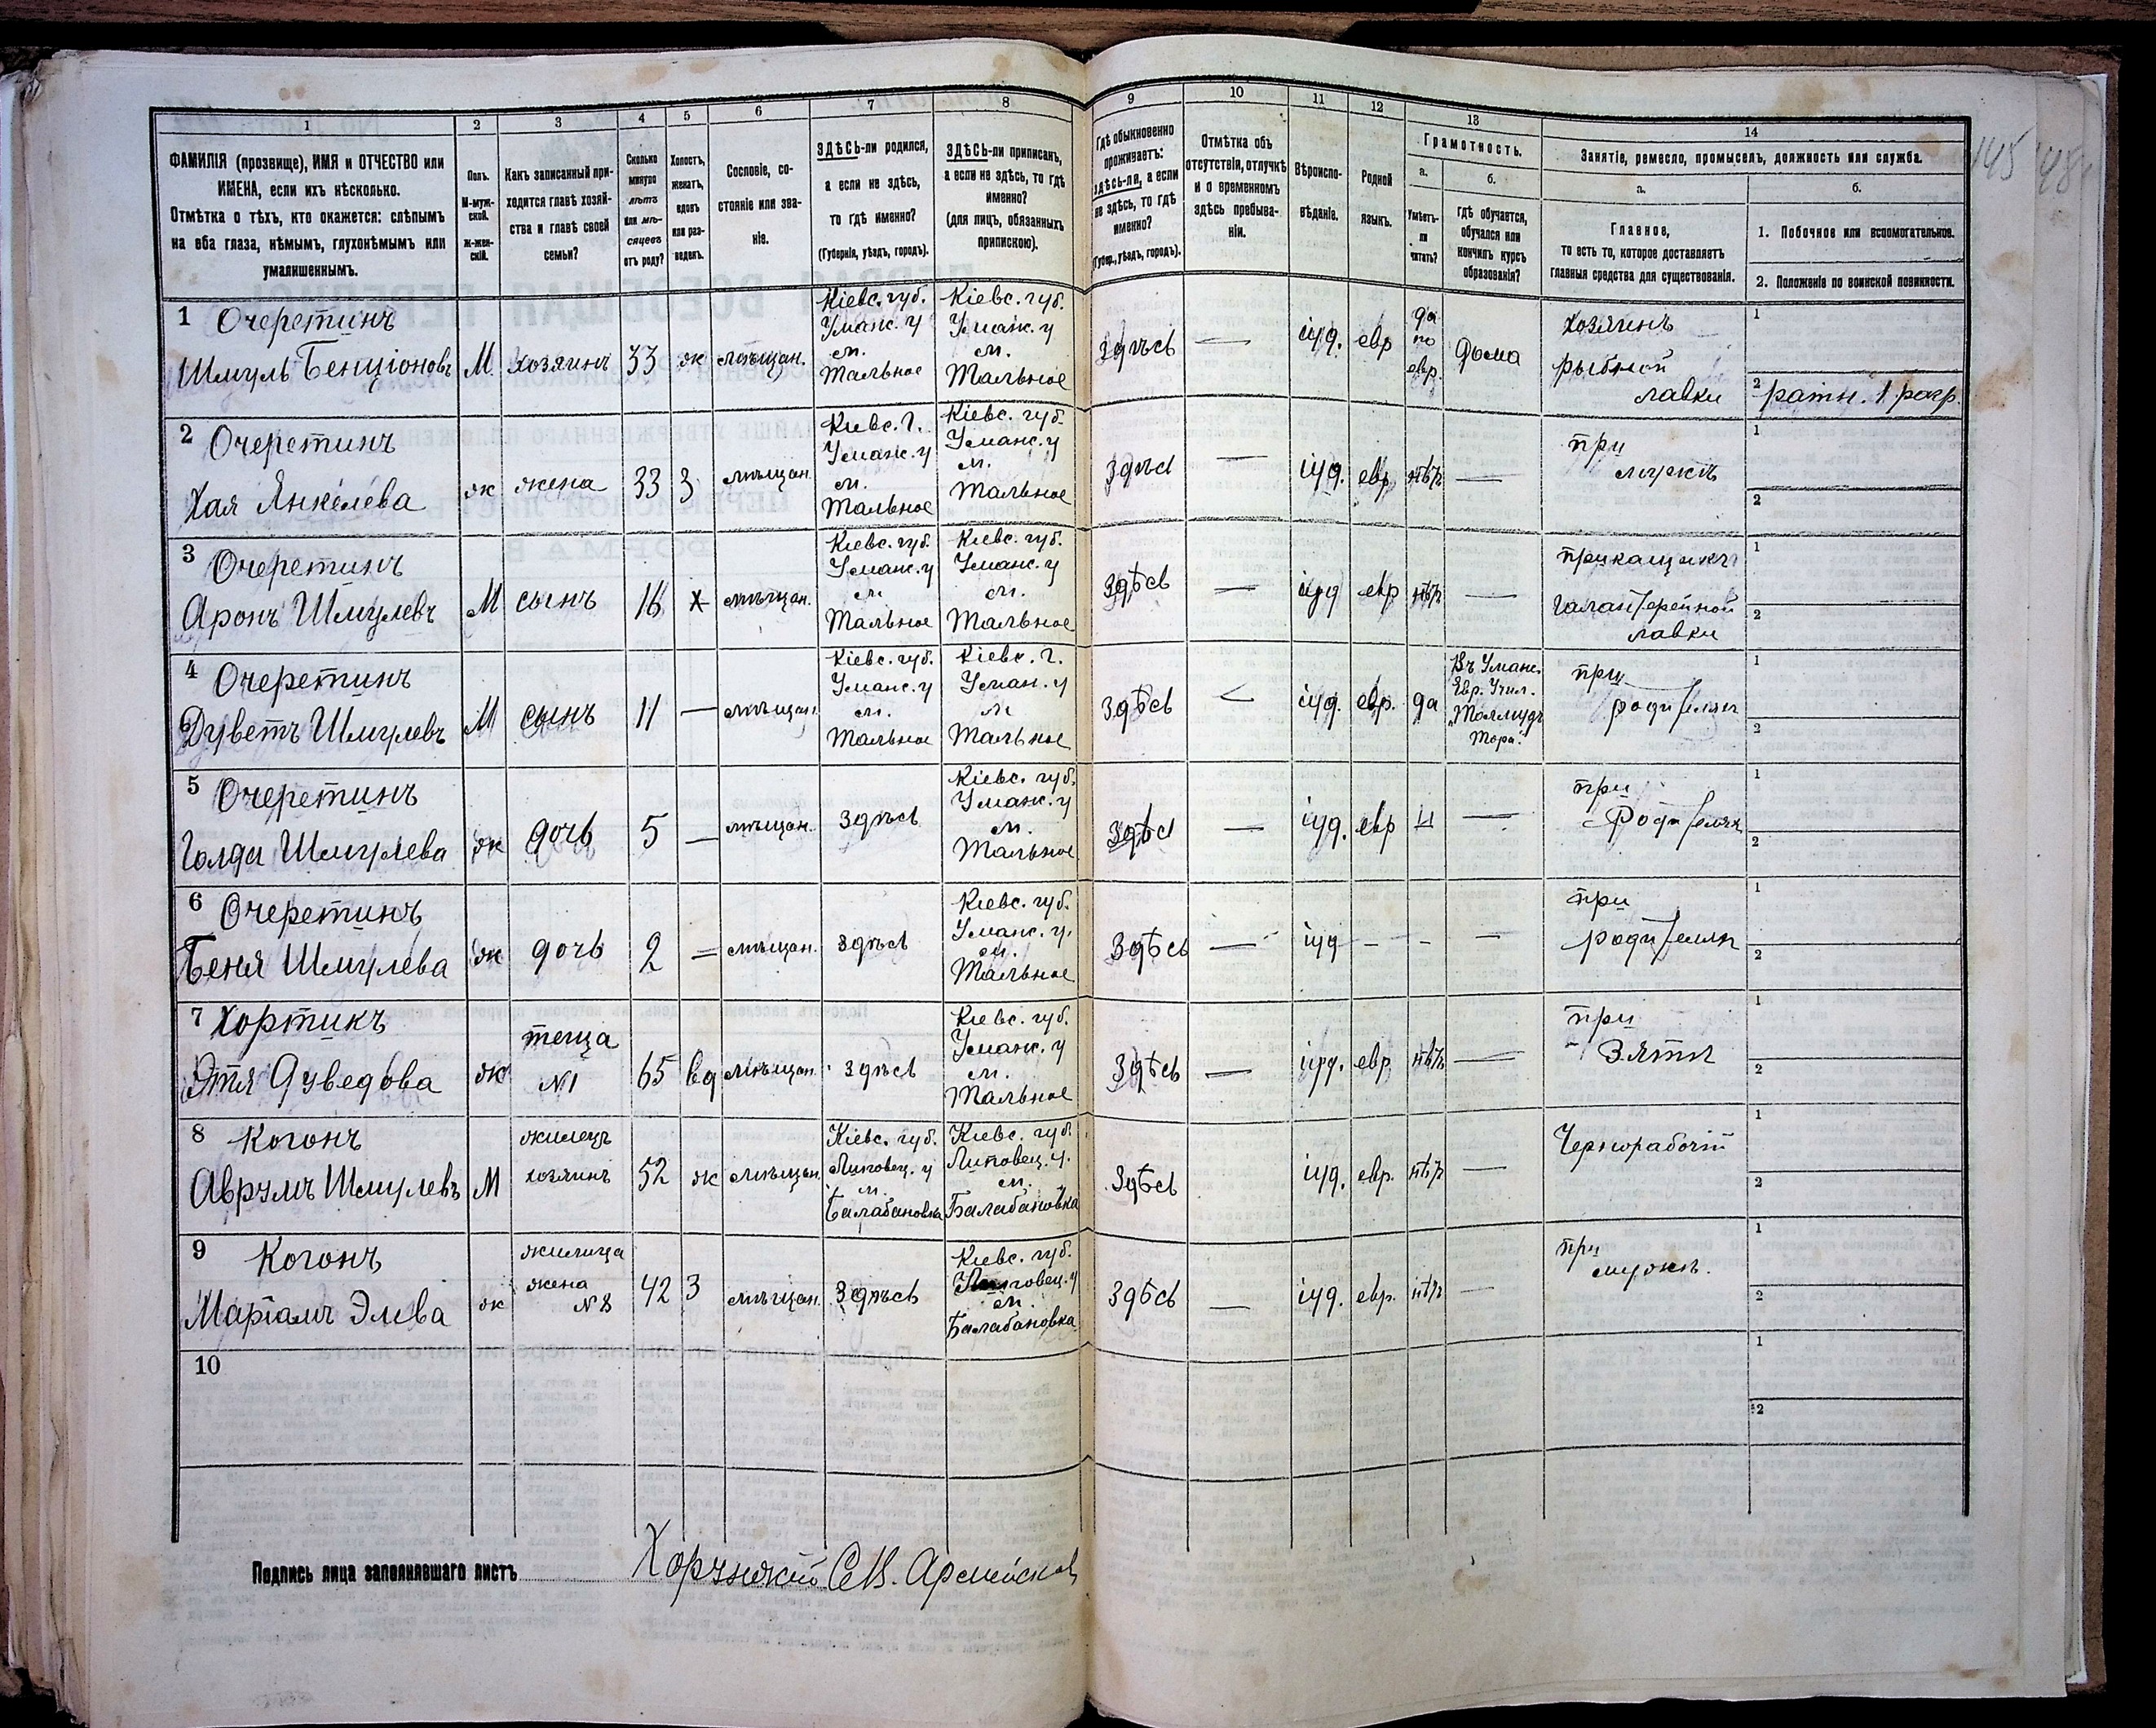 1 2 3 4 5 6 7 8 9 10 11 12 13 14
ФАМИЛІЯ (прозвище), ИМЯ и ОТЧЕСТВО или
ИМЕНА, если ихъ нѣсколько.
Отмѣтка о тѣхъ, кто окажется: слѣпымъ
на оба глаза, нѣмымъ, глухонѣмымъ или
умалишеннымъ.
Полъ.
М-муж-
ской.
Ж-жен-
скій.
Какъ записанный при-
ходится главѣ хозяй-
ства и главѣ своей
семьи?
Сколько
минуло
лѣтъ
или мѣ-
сяцевъ
отъ роду?
Холостъ,
женатъ,
вдовъ
или раз-
веденъ.
Сословіе, со-
стояніе или зва-
ніе.
ЗДѢСЬ-ли родился,
а если не здѣсь,
то гдѣ именно?
(Губернія, уѣздъ, городъ).
ЗДѢСЬ-ли приписанъ,
а если не здѣсь, то гдѣ
именно?
(для лицъ, обязанныхъ
припискою).
Гдѣ обыкновенно
проживаетъ:
здѣсь-ли, а если
не здѣсь, то гдѣ
именно?
(Губер., уѣздъ, городъ).
Отмѣтка объ
отсутствіи, отлучкѣ
и о временномъ
здѣсь пребыва-
ніи.
Вѣроиспо-
вѣданіе.
Родной
языкъ.
Грамотность.
а.
Умѣетъ-
ли
читать?
б.
Гдѣ обучается,
обучался или
кончилъ курсъ
образованія?
Занятіе, ремесло, промыселъ, должность или служба.
а.
Главное,
то есть то, которое доставляетъ
главныя средства для существованія.
б.
1. Побочное или вспомогательное.
2. Положеніе по воинской повинности.
145
1 Очеретинъ
Шмуль Бенціоновъ
М
хозяинъ
33
ж
мѣщан.
Кіевс. губ.
Уманс. у
м.
Тальное
Кіевс. губ.
Уманс. у
м.
Тальное
здѣсь
—
іуд.
евр
да
по
евр.
Дома
хозяинъ
рыбной
лавки
1
2 ратн. 1 разр.
2 Очеретинъ
Хая Янкелева
ж
жена
33
З
мѣщан.
Кіевс. г.
Уманс. у
м.
Тальное
Кіевс. губ.
Уманс. у
м.
Тальное
здѣсь
—
іуд.
евр
нѣтъ
—
при
мужѣ
1
2
3 Очеретинъ
Аронъ Шмулевъ
М
сынъ
16
х
мѣщан.
Кіевс. губ.
Уманс. у
м
Тальное
Кіевс. губ.
Уманс. у
м.
Тальное
здѣсь
—
іуд
евр
нѣтъ
—
прикащикъ
галантерейной
лавки
1
2
4 Очеретинъ
Дуветъ Шмулевъ
М
сынъ
11
—
мѣщан.
Кіевс. губ.
Уманс. у
м.
Тальное
Кіевс. г.
Уман. у
м
Тальное
здѣсь
іуд.
евр.
да
Въ Уманс.
Евр. Учил.
„Талмудъ
Тора“.
при
родителяхъ
1
2
5 Очеретинъ
Голда Шмулева
ж
дочь
5
—
мѣщан.
здѣсь
Кіевс. губ.
Уманс. у
м.
Тальное
здѣсь
—
іуд.
евр
н
—
при
Родителях
1
2
6 Очеретинъ
Беня Шмулева
ж
дочь
2
=
мѣщан.
здѣсь
Кіевс. губ.
Уманс. у.
м.
Тальное
здѣсь
—
іуд
-
-
—
при
родителях
1
2
7 Хортикъ
Этя Дуведова
ж
теща
№1
65
вд
мѣщан.
здѣсь
Кіевс. губ.
Уманс. у
м.
Тальное
здѣсь
—
іуд.
евр
нѣтъ
—
при
Зятѣ
1
2
8 Когонъ
Аврумъ Шмулевъ
М
жилецъ
хозяинъ
52
ж
мѣщан
Кіевс. губ.
Липовец. у
м.
Балабановка
Кіевс. губ.
Липовец. у.
м.
Балабановка
здѣсь
іуд.
евр.
нѣтъ
—
Чернорабочій
1
2
9 Когонъ
Маріамъ Элева
ж
жилица
жена
№8
42
З
мѣщан.
здѣсь
Кіевс. губ.
м.
Балабановка
здѣсь
—
іуд.
евр.
нѣтъ
—
при
мужѣ.
1
2
10
1
2
Подпись лица заполнявшаго листъ